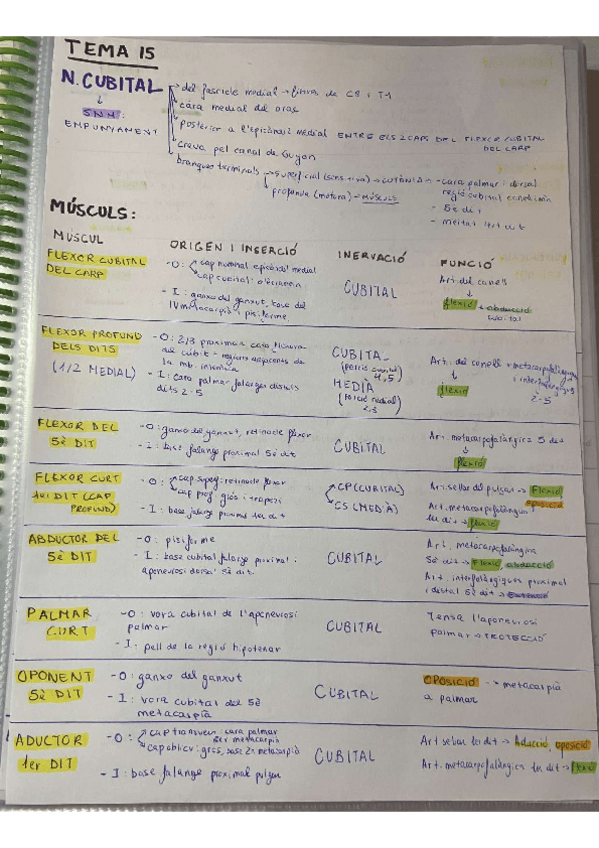 TEMA 15
N. CUBITAL
del fascicle medial → fibres de C8 i T1
cara medial del braç
SNN:
EMPUNYAMENT
posterior a l'epicòndil medial ENTRE ELS 2 CAPS DEL FLEXOR CUBITAL
DEL CARP
creua pel canal de Guyon
branques terminals → superficial (sensitiva) → CUTÀNIA → - cara palmar i dorsal
regió cubital
profunda (motora) → MÚSCULS
- 5è dit
- meitat 4rt dit
MÚSCULS:
MÚSCUL ORIGEN I INSERCIÓ INERVACIÓ FUNCIÓ
FLEXOR CUBITAL
DEL CARP
- O: cap humeral: epicòndil medial
cap cubital: olècranon
- I: ganxo del ganxut, base del
IV metacarpià i pisiforme
CUBITAL
Art. del canell
↓
flexió + abducció
cubital
FLEXOR PROFUND
DELS DITS
(1/2 MEDIAL)
- O: 2/3 proximals cara
del cúbit + regions adjacents de
la mb. interòssia
- I: cara palmar falanges distals
dits 2-5
CUBITAL
(porció cubital)
4,5
MEDIÀ
(porció radial)
2-3
Art. del canell + metacarpofalàngica
i interfalàngiques
2-5
↓
flexió
FLEXOR DEL
5È DIT
- O: ganxo del ganxut, retinacle flexor
- I: base falange proximal 5è dit
CUBITAL
Art. metacarpofalàngica 5 dit
↓
flexió
FLEXOR CURT
1er DIT (CAP
PROFUND)
- O: cap superf: retinacle flexor
cap prof: gros i trapezi
- I: base falange proximal 1er dit
CP (CUBITAL)
CS (MEDIÀ)
Art. sellar del polçar → Flexió
oposició
Art. metacarpofalàngica
1er dit → flexió
ABDUCTOR DEL
5È DIT
- O: pisiforme
- I: base cubital falange proximal i
aponeurosi dorsal 5è dit
CUBITAL
Art. metacarpofalàngica
5è dit → Flexió, abducció
Art. interfalàngiques proximal
i distal 5è dit →
PALMAR
CURT
- O: vora cubital de l'aponeurosi
palmar
- I: pell de la regió hipotenar
CUBITAL
Tensa l'aponeurosi
palmar → PROTECCIÓ
OPONENT
5È DIT
- O: ganxo del ganxut
- I: vora cubital del 5è
metacarpià
CUBITAL
OPOSICIÓ → metacarpià
a palmar
ADUCTOR
1er DIT
- O: cap transvers: cara palmar
3er metacarpià
cap oblicu: gros, base 2n metacarpià
- I: base falange proximal polçar
CUBITAL
Art sellar 1er dit → Adducció, oposició
Art. metacarpofalàngica 1er dit → flexió